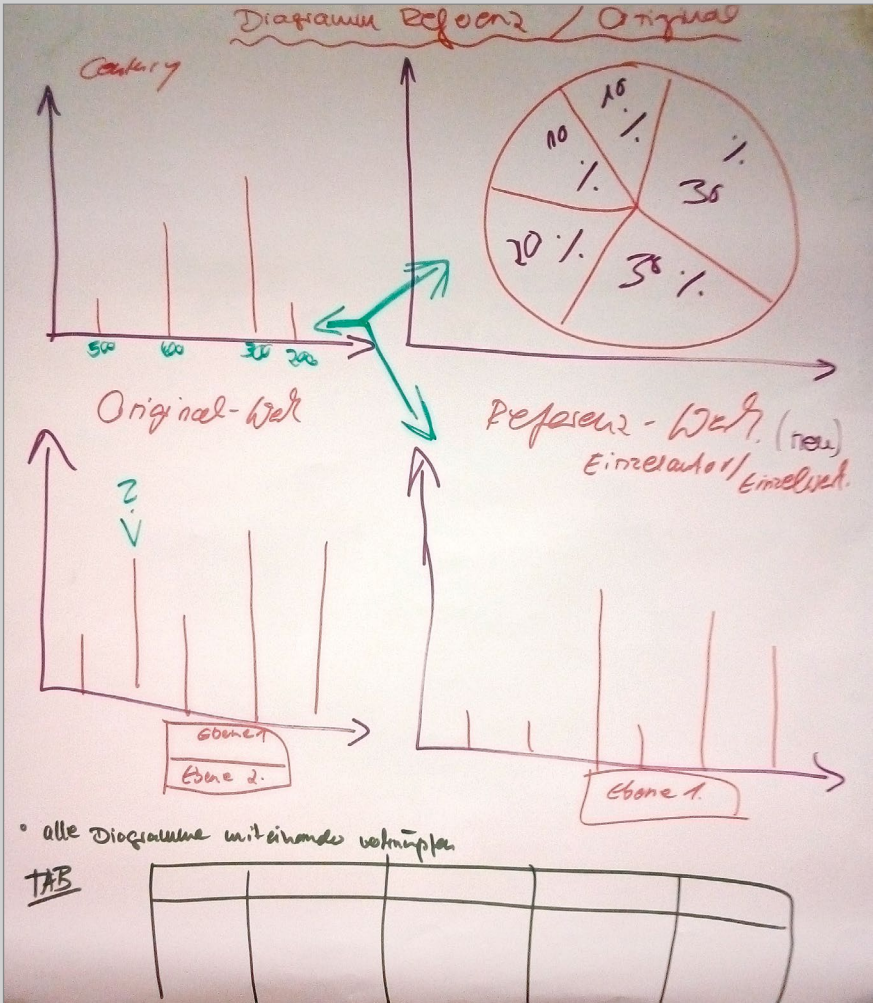 Diagramm Refernz / Original
Century
10 %
10 %
% 30
20 %
30 %
500 600 300 200
Original-Werk
Referenz-Werk (neu)
Einzelautor/
Einzelwerk.
?
Ebene 1
Ebene 2.
Ebene 1.
• alle Diagramme miteinander verknüpfen
TAB